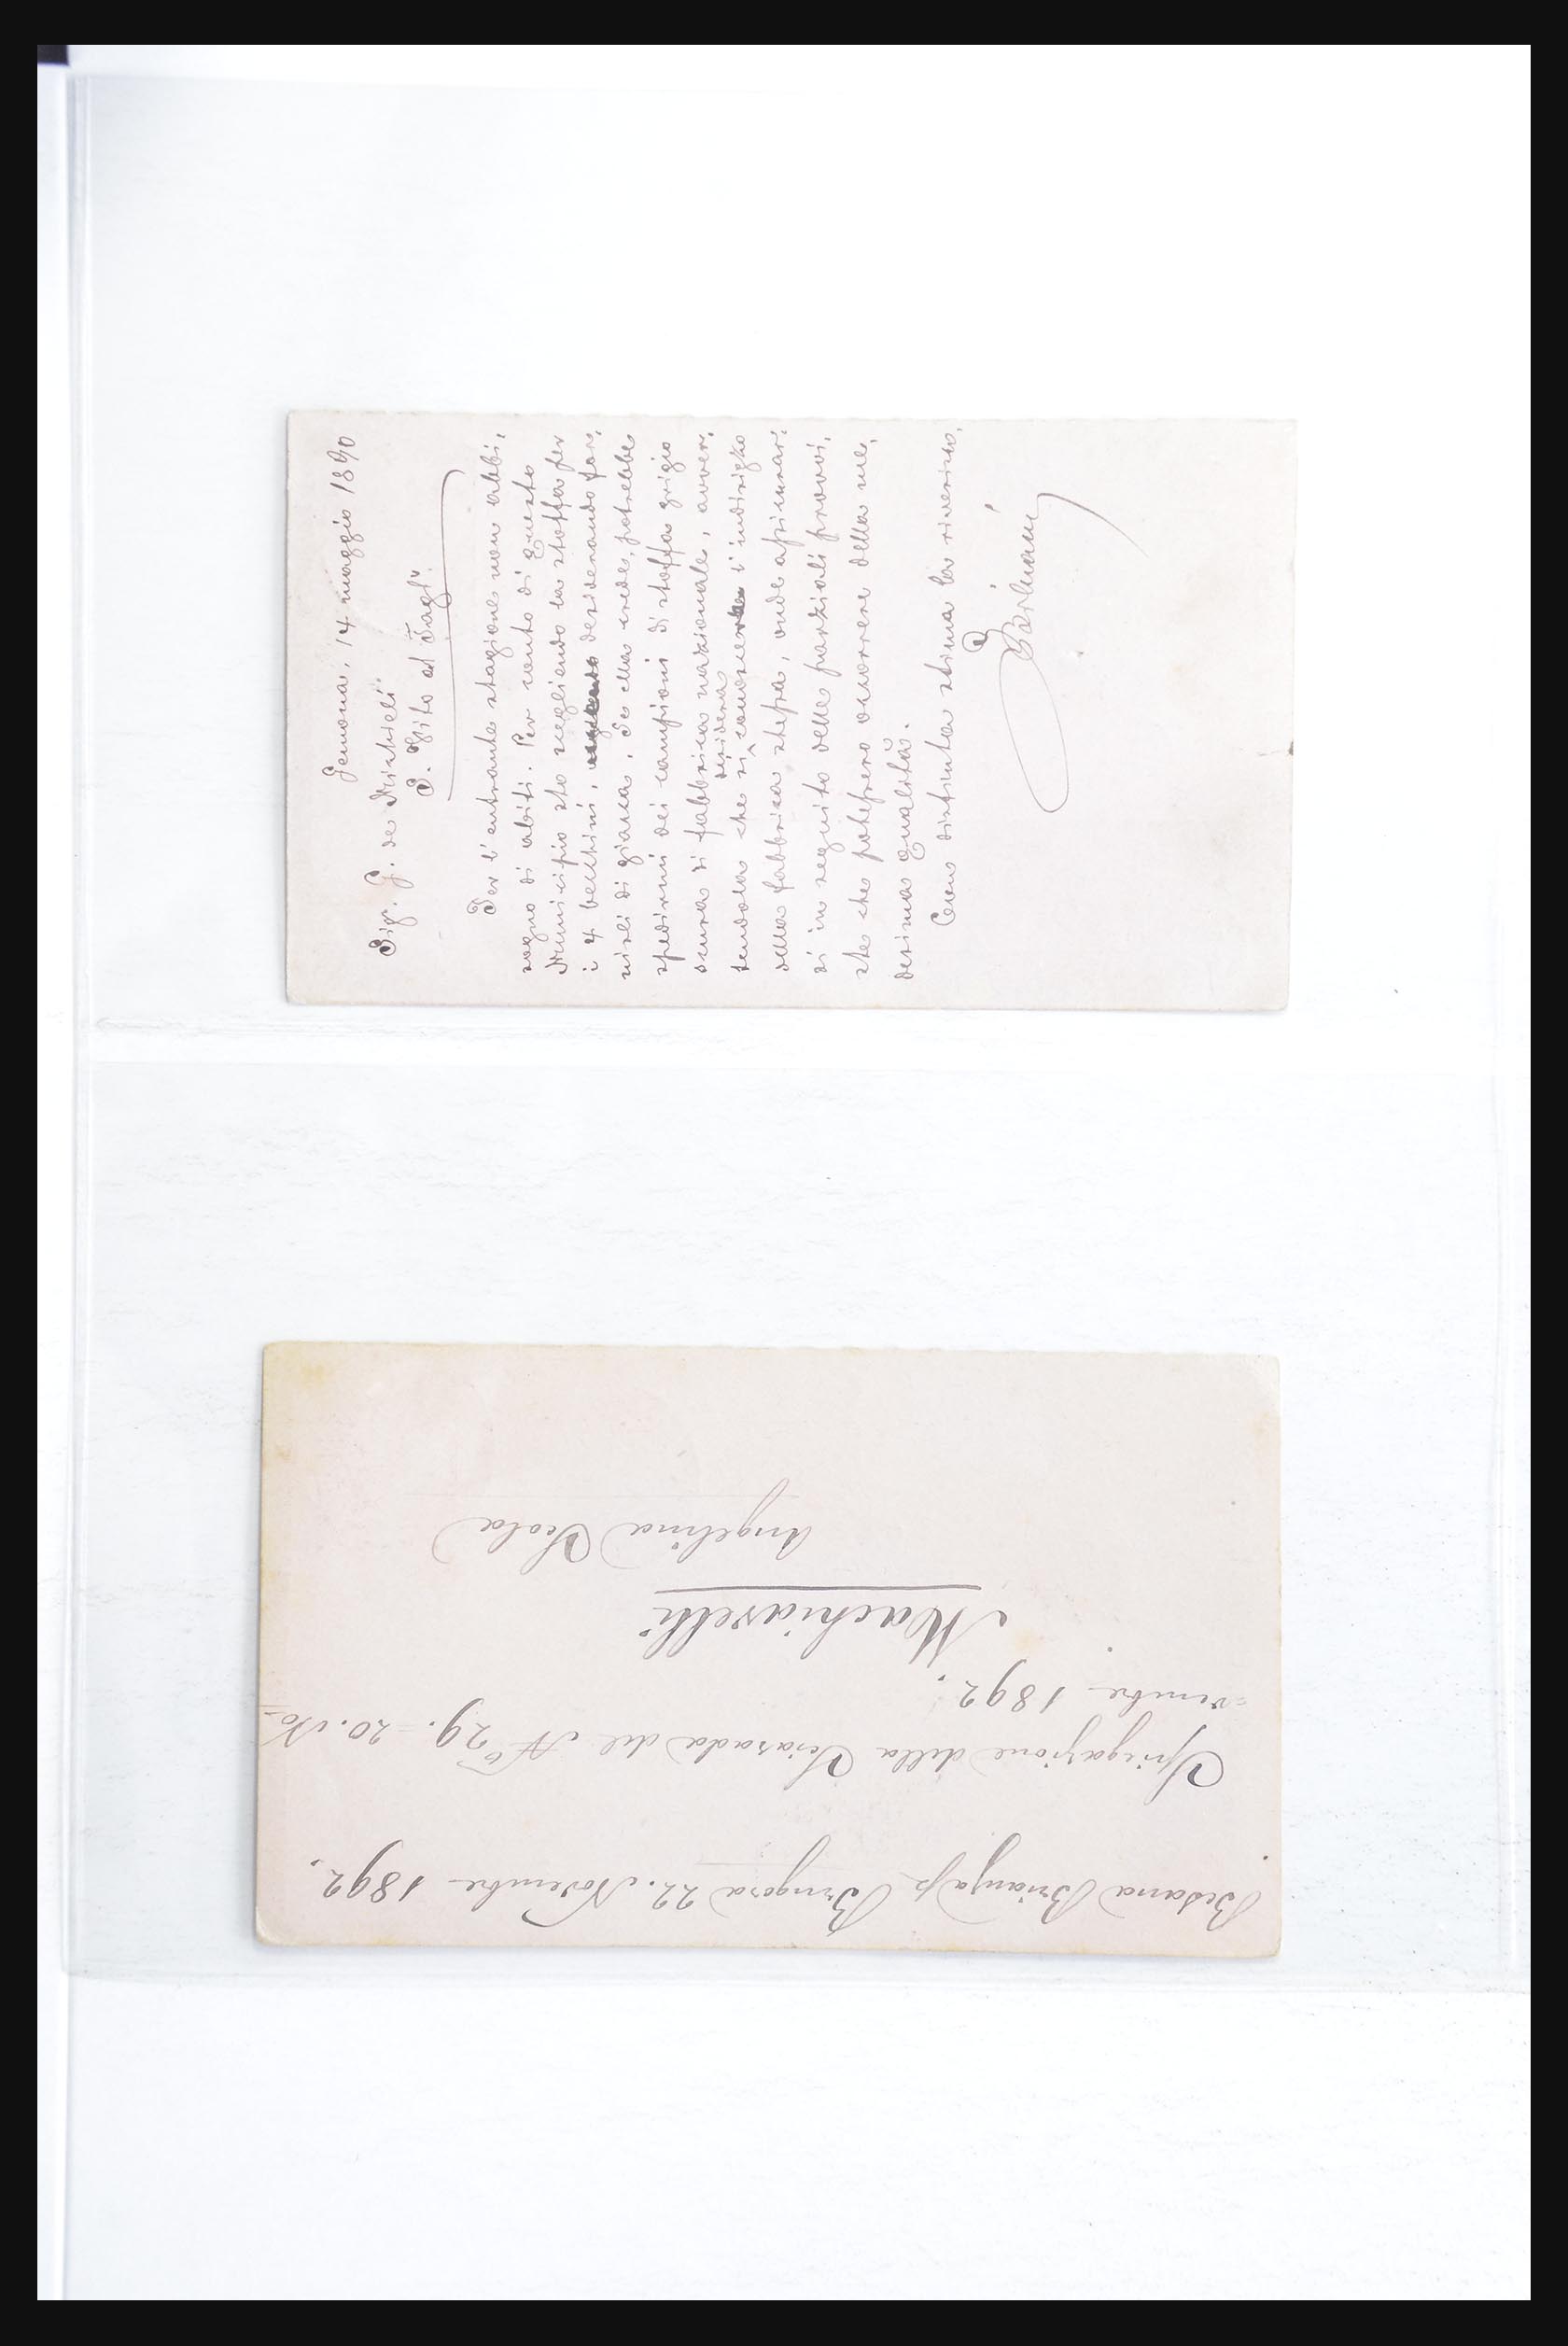 Gemona, 14 maggio 1890
Sig. G. de
S. Vito al Tagl°.
Per l'entrante stagione non abbi,
sogno di abiti. Per conto di questo
Municipio sto scegliendo la stoffa per
i 4 becchini, desiderando for,
nirli di giacca. Se ella crede, potrebbe
spedirmi dei campioni di stoffa grigio
scura di fabbrica nazionale, avver,
tendola che si desidera conoscere l'indirizzo
della fabbrica stessa, onde assicurar,
si in seguito delle parziali provvi,
ste che potessero occorrere della me,
desima qualità.
Con distinta stima la riverisco.
Besana Brianza p. Brugora 22. Novembre 1892.
Spiegazione della Sciarada del N° 29. - 20. No=
=vembre 1892.
Machiavelli
Angelina Viola